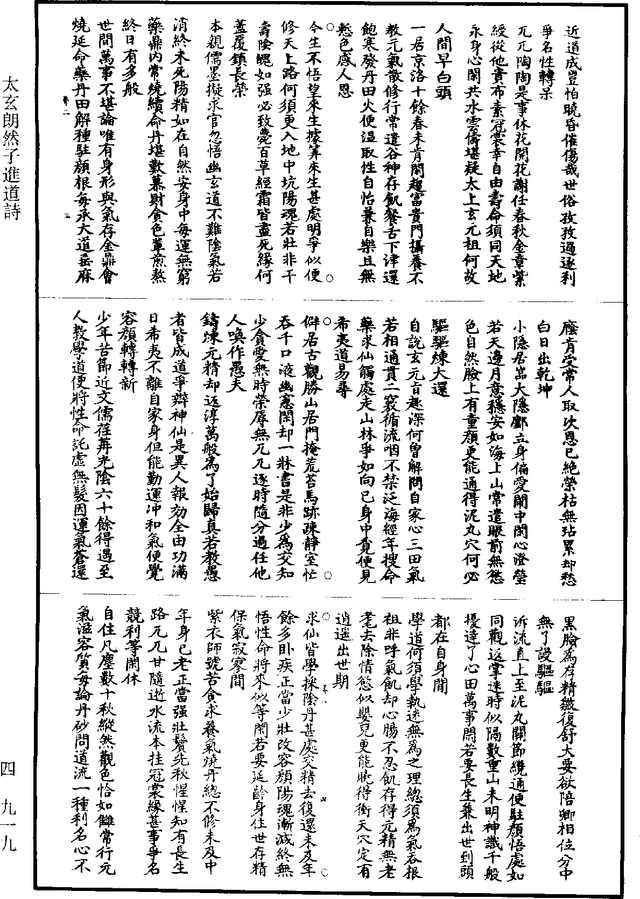 太玄朗然子進道詩
近道成豈怕曉昏催傷哉世俗孜孜過逐利
爭名性轉呆
兀兀陶陶是事休花開花謝任春秋金章紫
綬從他貴布素冠裳幸自由壽命須同天地
永身心閑共水雲儔堪疑太上玄元祖何故
人間早白頭
一居京洛十餘春未肯閑趨富貴門攝養不
教元氣散修行常遣谷神存飢餐舌下津還
飽寒發丹田火便溫取性自怡兼自樂且無
愁色感人恩
今生不悟望來生據筭來生甚處明爭似便
修天上路何須更入地中坑陽魂若壯非干
壽陰魄如強必致薨百草經霜皆盡死緣何
蓋覆鎮長榮
本親儒墨擬求官忽悟幽玄道不難陰氣若
消終未死陽精如在自然安身中每運無窮
藥鼎內常燒續命丹堪歎慕財貪色輩煎熬
終日有多般
世間萬事不堪論唯有身形與氣存金鼎會
燒延命藥丹田解種駐顏根每承大道垂麻
塵肯受常人取次恩已絶榮枯無玷累却愁
白日出乾坤
小隱居嵓大隱鄽立身偏愛閙中閑心澄瑩
若天邊月意穩安如海上山常遣眼前無慾
色自然臉上有童顏更能通得泥丸穴何必
驅驅煉大還
自說玄元旨趣深何曾解問自家心三田氣
若相通貫二竅循流咽不禁泛海經年搜命
藥求仙觸處走山林爭如向己身中覓便見
希夷道易尋
僻居古觀勝山居門掩荒苔馬跡踈静室忙
吞千口液幽窻閑却一牀書是非少爲交知
少貪愛無時榮辱無兀兀逐時隨分過任他
人喚作愚夫
鑄煉元精却返淳萬般爲了始歸真若教愚
者皆成道爭辯神仙是異人報効全由功滿
日希夷不離自家身但能勤運冲和氣便覺
容顏轉轉新
少年苦節近文儒荏苒光陰六十餘得遇至
人教學道便將性命託虛無髮因運氣蒼還
黑臉爲存精皺復舒大要欲陪卿相位分中
無了謾驅驅
泝流直上至泥丸關節纔通便駐顏悟處如
同觀返掌迷時似隔數重山未明神識千般
擾達了心田萬事閑若要長生兼出世到頭
都在自身閒
學道何須學執迷無爲之理總須爲氣吞根
祖非呼氣飢却心腸不忍飢存得元精無老
耄去除情慾似嬰兒更能曉得衝天穴定有
逍遙出世期
求仙皆學採陰丹甚處交精去復還未及年
餘多卧疾正當少壯改容顏陽魂漸減終無
悟性命將來似等閑若要延齡身住世存精
保氣寂寥間
紫衣師號若貪求養氣燒丹總不修未及中
年身已老正當強壯鬢先秋惺惺知有長生
路兀兀甘隨逝水流本挂冠裳緣甚事爭名
競利等閑休
自住凡塵數十秋縱然觀色恰如讎常行元
氣滋容質每論丹砂問道流一種利名心不
四 九一九